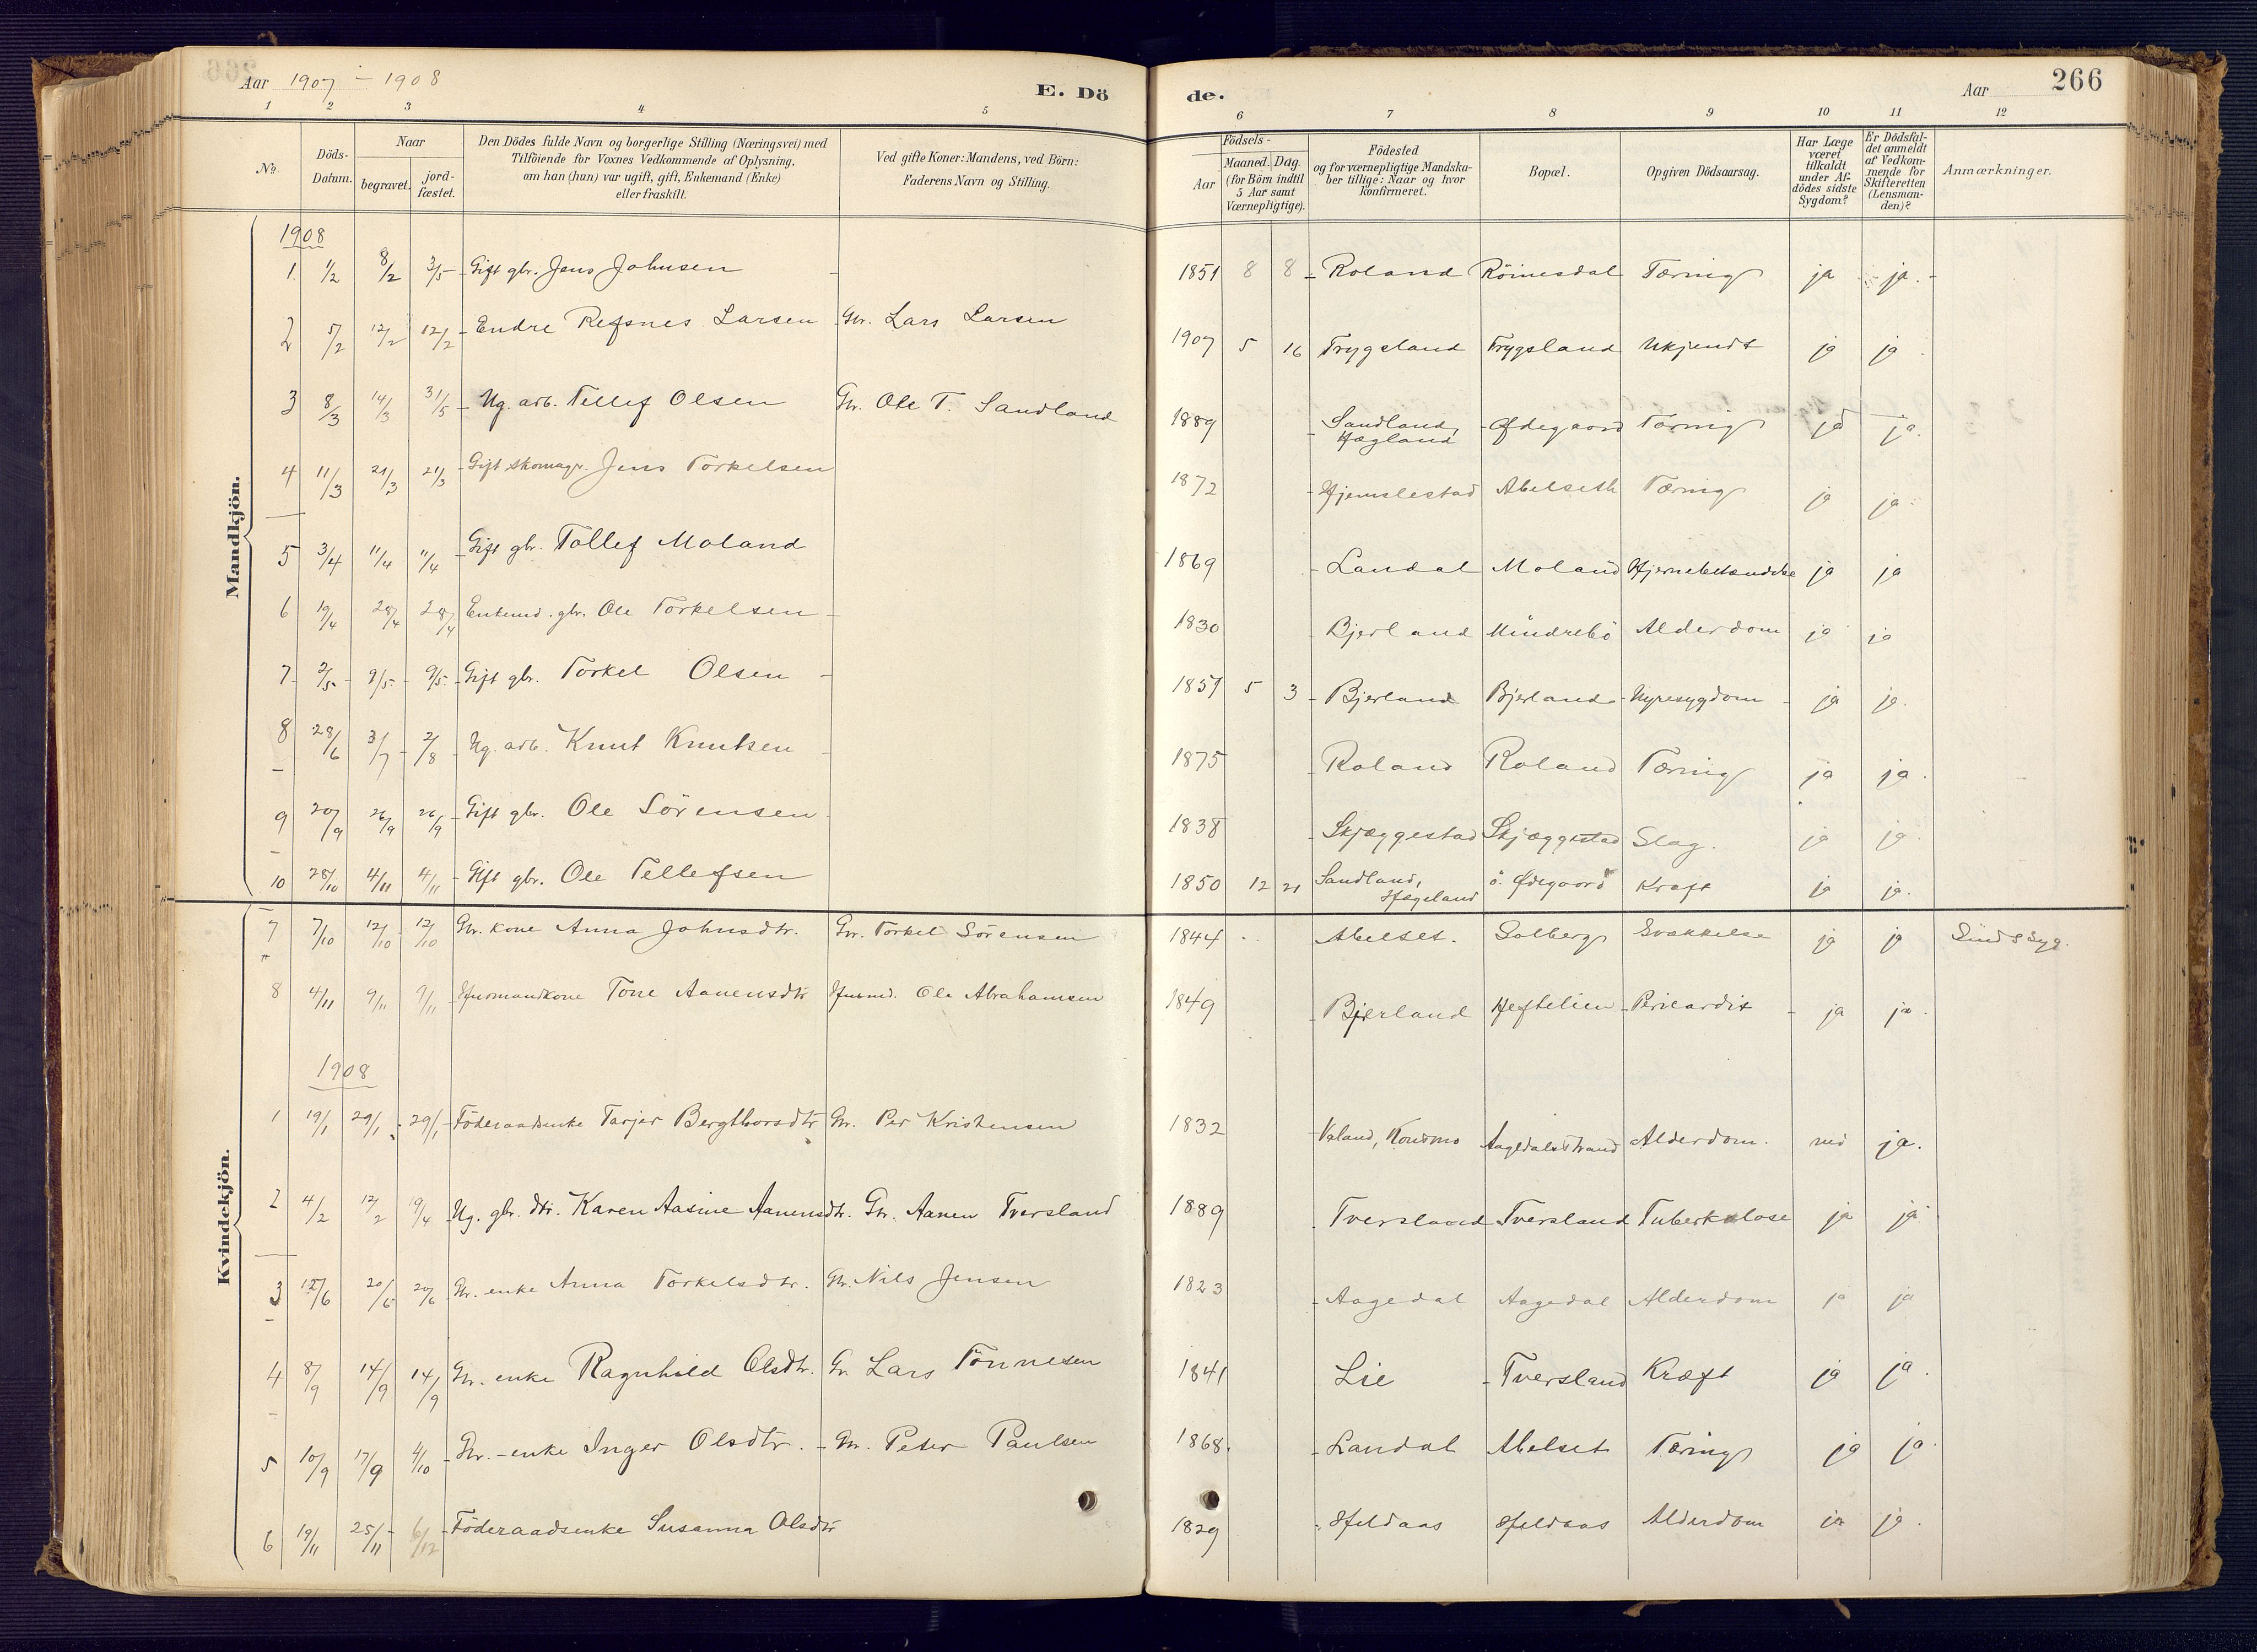 Aar 1907 - 1908 E. Dö de. Aar 266
1 2 3 4 5 6 7 8 9 10 11 12
No. Döds-Datum. Naar begravet. jord-fæstet.
Den Dödes fulde Navn og borgerlige Stilling (Næringsvei) med
Tilföiende for Voxnes Vedkommende af Oplysning,
om han (hun) var ugift, gift, Enkemand (Enke)
eller fraskilt.
Ved gifte Koner: Mandens, ved Börn:
Faderens Navn og Stilling.
Födsels-
Aar Maaned. Dag.
(for Börn indtil
5 Aar samt
Værnepligtige).
Födested
og for værnepligtige Mandska-
ber tillige: Naar og hvor
konfirmeret.
Bopæl.
Opgiven Dödsaarsag.
Har Læge
været
tilkaldt
under Af-
dödes sidste
Sygdom?
Er Dödsfal-
det anmeldt
af Vedkom-
mende for
Skifteretten
(Lensman-
den)?
Anmærkninger.
Mandkjön.
1908
1. 1/2 8/2 3/5 Gift gbr. Jens Johnsen 1851 8 8 Roland Röinesdal Tæring ja ja.
2 5/2 12/2 12/2 Endre Refsnes Larsen Gbr. Lars Larsen 1907 5 16 Trygsland Trygsland Ukjendt ja ja
3 8/3 14/3 31/5 Ug. arb. Tellef Olsen Gbr. Ole T. Sandland 1889 Sandland, Hægland Ødegaard Tæring ja ja.
4 11/3 21/3 21/3 Gift skomagr. Jens Torkelsen 1872 Hjemlestad Abelseth Tæring ja ja
5 3/4 11/4 11/4 Gift gbr. Tollef Moland 1869 Landal Moland ja ja
6 19/4 28/4 28/4 Enkemd. gbr. Ole Torkelsen 1830 Bjerland Mindrebö Alderdom ja ja
7 2/5 9/5 9/5 Gift gbr. Torkel Olsen 1851 5 3 Bjerland Bjerland Nyresygdom ja ja.
8 28/6 3/7 2/8 Ug. arb. Knut Knutsen 1875 Roland Roland Tæring ja ja.
9 20/9 26/9 26/9 Gift gbr. Ole Sörensen 1838 Skjæggestad Skjæggestad Slag. ja ja.
10 28/10 4/11 4/11 Gift gbr. Ole Tellefsen 1850 12 21 Sandland, Hægeland ö. Ødegaard Kræft ja ja.
Kvindekjön.
7 7/10 12/10 12/10 Gbr. kone Anna Johnsdtr. Gbr. Torkel Sörensen 1844 Abelset. Solberg Svækkelse ja ja Sindssyg.
8 4/11 9/11 9/11 Husmandkone Tone Aanensdtr Husmd. Ole Abrahamsen 1849 Bjerland Heftelien Pericardit ja ja.
1908
1 19/1 29/1 29/1 Föderaadsenke Tarjer Bergthorsdtr Gbr. Per Kristensen 1832 Valand, Konsmo Aagedalstrand Alderdom. nei ja.
2 4/2 12/2 19/4 Ug. gbr. dtr. Karen Aasine Aanensdtr. Gbr. Aanen Tversland 1889 Tversland Tversland Tuberkulose ja ja
3 12/6 20/6 20/6 Gbr. enke Anna Torkelsdtr. Gbr. Nils Jensen 1823 Aagedal Aagedal Alderdom ja ja
4 8/9 14/9 14/9 Gbr. enke Ragnhild Olsdtr. Gbr Lars Tönnesen 1841 Lie Tversland Kræft ja ja.
5 10/9 17/9 4/10 Gbr.-enke Inger Olsdtr. Gbr. Peter Paulsen 1868. Landal Abelset Tæring ja ja.
6 19/11 25/11 6/12 Föderaadsenke Susanna Olsdtr 1829 Heldaas Heldaas Alderdom ja ja.